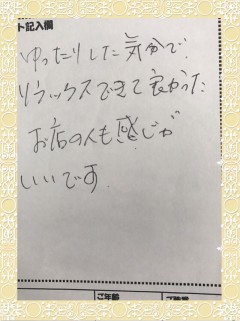 ト記入欄
ゆったりした気分で
リラックスできて良かった
お店の人も感じが
いいです
ご年齢